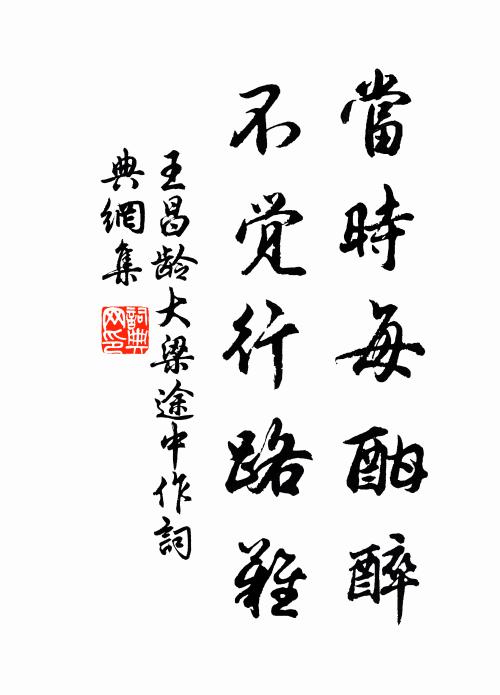 當時每酣醉
不覚行路難
王昌龄大梁途中作詞
典網集
詞典网印